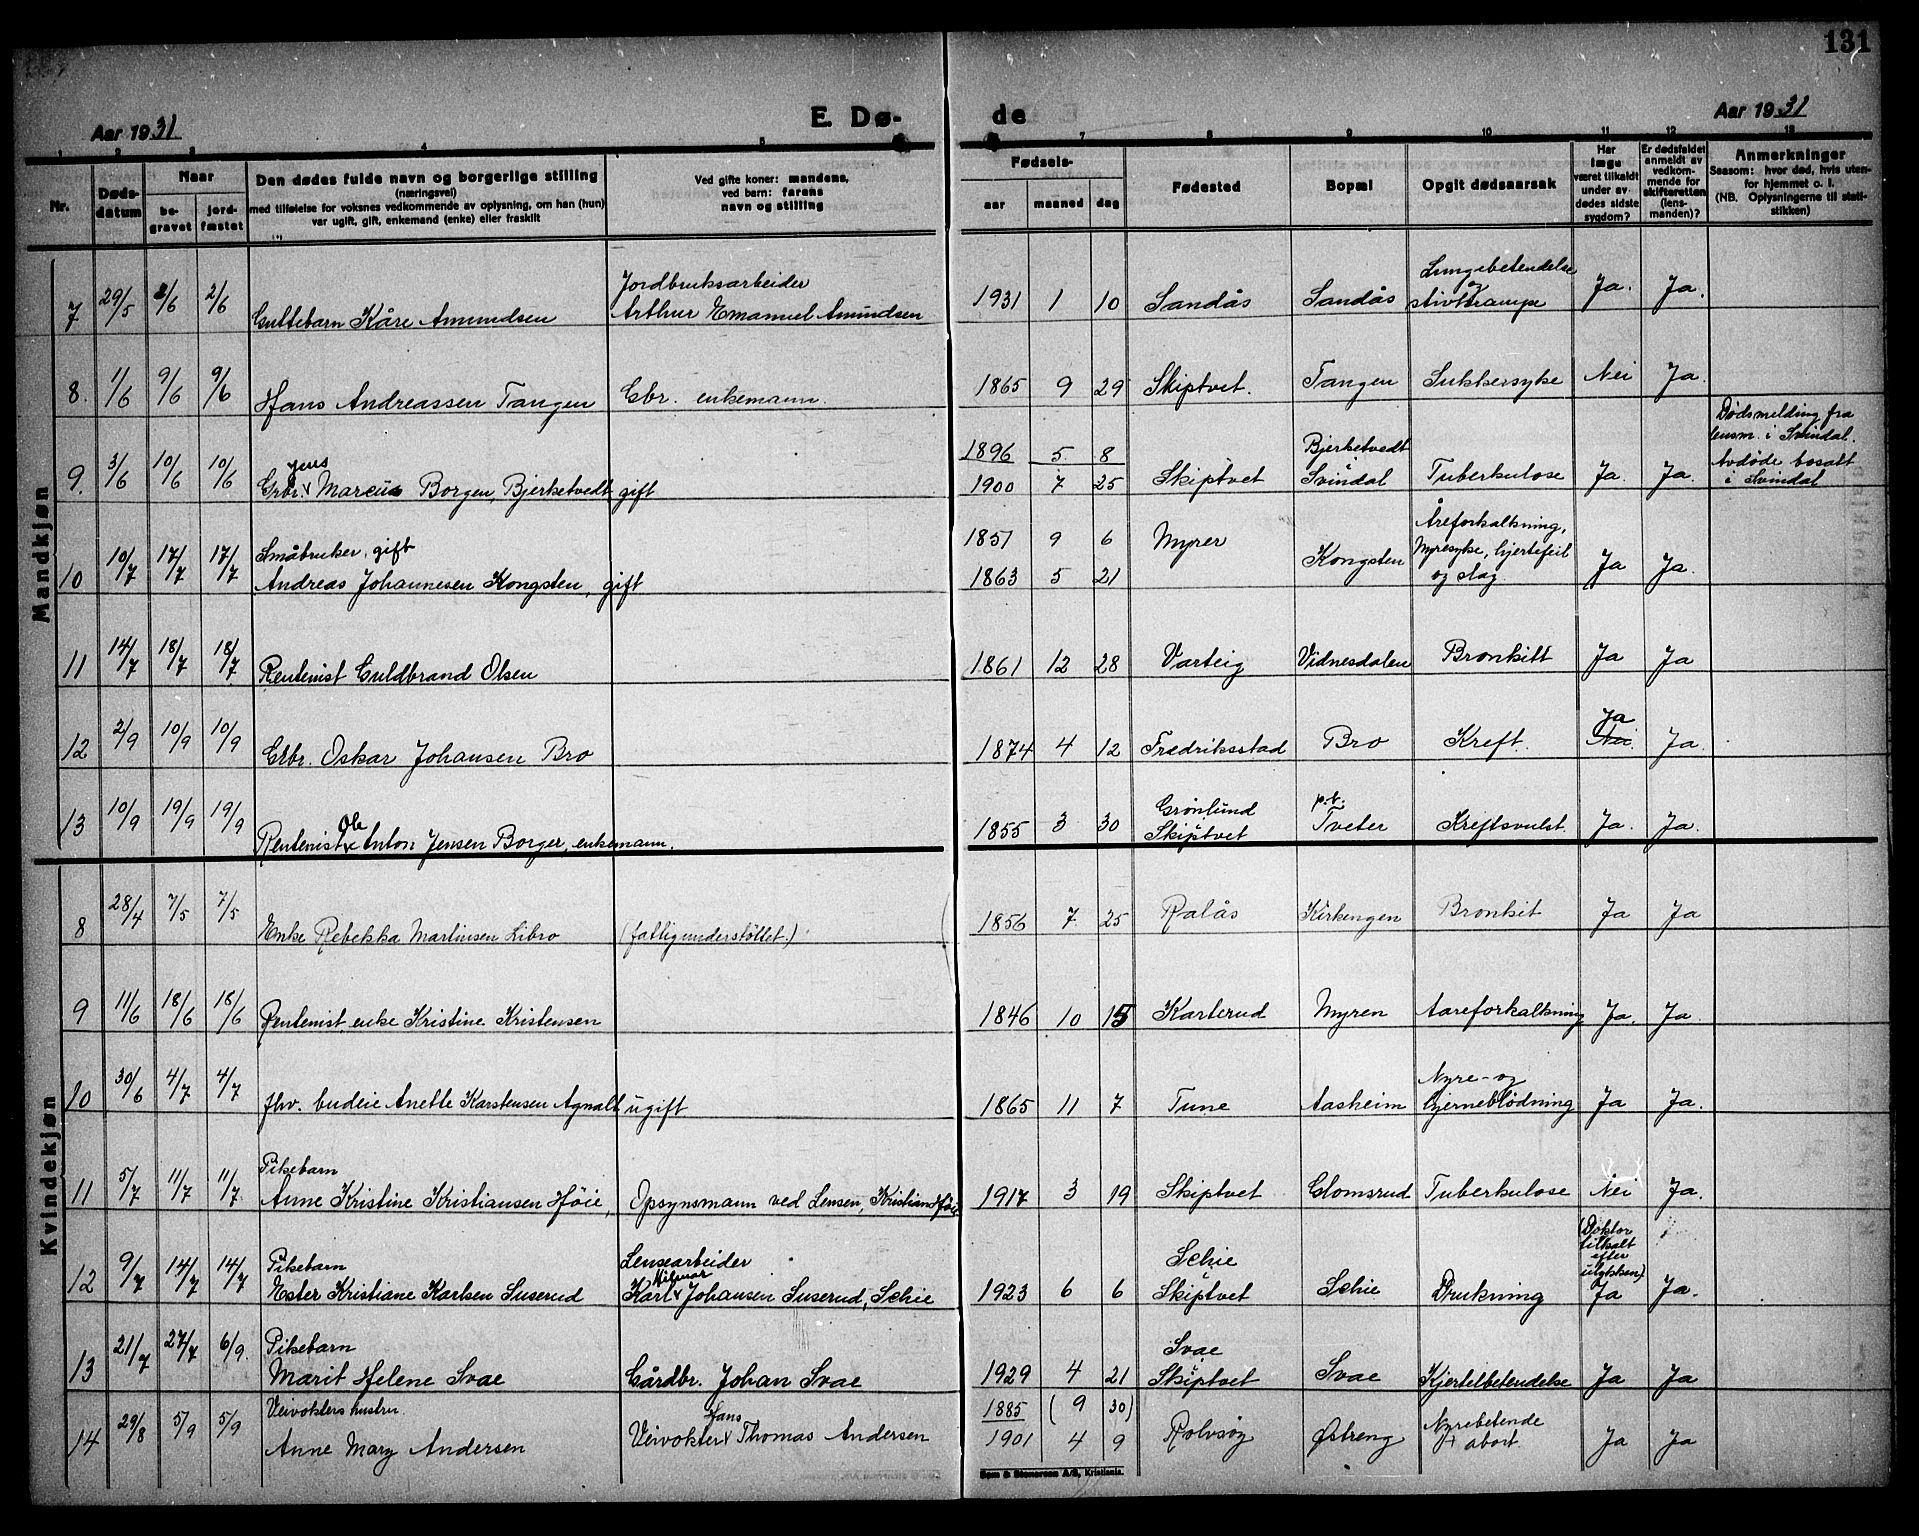 131
Aar 1931
E. Dø-
de
Aar 1931
1 2 3 4 5 7 8 9 10 11 12 13
Nr.
Døds-
datum
Naar
be-
gravet
jord-
fæstet
Den dødes fulde navn og borgerlige stilling
(næringsvei)
med tilføielse for voksnes vedkommende av oplysning, om han (hun)
var ugift, gift, enkemand (enke) eller fraskilt
Ved gifte koner: mandens,
ved barn: farens
navn og stilling
Fødsels-
aar maaned dag
Fødested
Bopæl
Opgit dødsaarsak
Har
læge
været tilkaldt
under av-
dødes sidste
sygdom?
Er dødsfaldet
anmeldt av
vedkom-
mende for
skifteretten
(lens-
manden)?
Anmerkninger
Seasom: hvor død, hvis uten-
for hjemmet o. l.
(NB. Oplysningerne til stati-
stikken)
Mandkjøn
7 29/5 2/6 2/6 Guttebarn Kåre Amundsen
Jordbruksarbeider
Arthur Emanuel Amundsen
1931 1 10 Sandås Sandås
Lungebetendelse
og
stivkrampe
Ja. Ja.
8. 1/6 9/6 9/6 Hans Andreassen Tangen Gbr. enkemann.
1865 9 29 Skiptvet. Tangen Sukkersyke Nei Ja.
9. 3/6 10/6 10/6
Jens
Grbr. Marcus Borgen, Bjerketvedt gift
1896 5 8
1900 7 25
Skiptvet
Bjerketvedt
i
Svindal
Tuberkulose Ja. Ja.
Dødsmelding fra
lensm. i Svindal.
Avdøde bosatt
i Svindal
10 10/7 17/7 17/7
Småbruker, gift
Andreas Johannesen Kongsten, gift
1851 9 6
1863 5 21
Myrer Kongsten
Åreforkalkning,
Nyresyke, hjertefeil
og slag
Ja Ja.
11 14/7 18/7 18/7 Rentenist Guldbrand Olsen
1861 12 28 Varteig Vidnesdalen Bronkitt Ja Ja
12 2/9 10/9 10/9 Grbr. Oskar Johansen Bro
1874 4 12 Fredriksstad Bro Kreft.
Ja
Nei. Ja.
13 10/9 19/9 19/9
Ole
Rentenist Anton Jensen Borger, enkemann.
1855 3 30
Grønlund
Skiptvet
p.t.
Tveter
Kreftsvulst. Ja. Ja.
Kvindekjøn
8 28/4 7/5 7/5 Enke Rebekka Martinsen Libro (fattigunderstöttet.)
1856 7 25 Ralås Kirkengen Bronkit Ja Ja
9 11/6 18/6 18/6 Rentenist enke Kristine Kristensen
1846 10 15 Karterud Myren Aareforkalkning Ja. Ja.
10 30/6 4/7 4/7 fhv. budeie Anette Karstensen Agnalt ugift
1865 11 7 Tune Aasheim
Nyre- og
hjerneblödning
Ja Ja.
11 5/7 11/7 11/7
Pikebarn
Anne Kristine Kristiansen Høie, Opsynsmann ved Lensen, Kristian Høie
1917 3 19 Skiptvet Glomsrud Tuberkulose Nei Ja.
12 9/7 14/7 14/7
Pikebarn
Ester Kristiane Karlsen Suserud
Lensearbeider
Hilmar
Karl Johansen Suserud, Schie
1923 6 6
Schie
i
Skiptvet
Schie Drukning
(Doktor
tilkalt
efter
ulykken)
Ja Ja.
13 21/7 27/7 6/9.
Pikebarn
Marit Helene Svae Gårdbr. Johan Svae
1929 4 21
Svae
i
Skiptvet
Svae Kjertelbetendelse Ja Ja
14 29/8 5/9 5/9
Veivokters hustru
Anne Mary Andersen
Hans
Veivokter Thomas Andersen
1885 (9 30)
1901 4 9
Rolvsøy Østreng
Nyrebetende
+ abort
Ja Ja
Sem & Stenersen A/S, Kristiania.